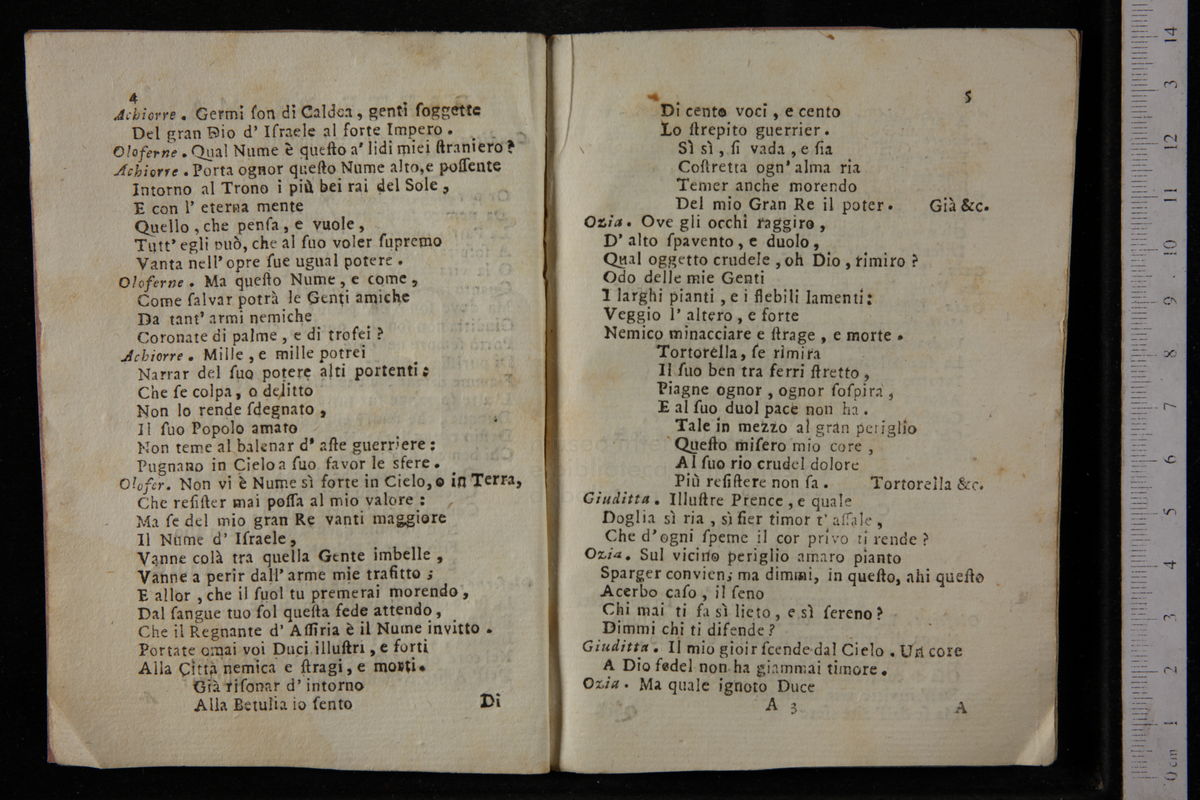 4
Achiorre. Germi ſon di Caldea, genti ſoggette
Del gran Dio d' Iſraele al forte Impero.
Oloferne. Qual Nume è queſto a' lidi miei ſtraniero?
Achiorre. Porta ognor queſto Nume alto, e poſſente
Intorno al Trono i più bei rai del Sole,
E con l' eterna mente
Quello, che penſa, e vuole,
Tutt' egli può, che al ſuo voler ſupremo
Vanta nell' opre ſue ugual potere.
Oloferne. Ma queſto Nume, e come,
Come ſalvar potrà le Genti amiche
Da tant' armi nemiche
Coronate di palme, e di trofei?
Achiorre. Mille, e mille potrei
Narrar del ſuo potere alti portenti:
Che ſe colpa, o delitto
Non lo rende ſdegnato,
Il ſuo Popolo amato
Non teme al balenar d' aſte guerriere:
Pugnano in Cielo a ſuo favor le sfere.
Olofer. Non vi è Nume sì forte in Cielo, o in Terra,
Che reſiſter mai poſſa al mio valore:
Ma ſe del mio gran Re vanti maggiore
Il Nume d' Iſraele,
Vanne colà tra quella Gente imbelle,
Vanne a perir dall' arme mie trafitto;
E allor, che il ſuol tu premerai morendo,
Dal ſangue tuo ſol queſta fede attendo,
Che il Regnante d' Aſſiria è il Nume invitto.
Portate omai voi Duci illuſtri, e forti
Alla Città nemica e ſtragi, e morti.
Già riſonar d' intorno
Alla Betulia io ſento
Di
5
Di cento voci, e cento
Lo ſtrepito guerrier.
Sì sì, ſi vada, e ſia
Coſtretta ogn' alma ria
Temer anche morendo
Del mio Gran Re il poter. Già &c.
Ozia. Ove gli occhi raggiro,
D' alto ſpavento, e duolo,
Qual oggetto crudele, oh Dio, rimiro?
Odo delle mie Genti
I larghi pianti, e i flebili lamenti:
Veggio l' altero, e forte
Nemico minacciare e ſtrage, e morte.
Tortorella, ſe rimira
Il ſuo ben tra ferri ſtretto,
Piagne ognor, ognor ſoſpira,
E al ſuo duol pace non ha.
Tale in mezzo al gran periglio
Queſto miſero mio core,
Al ſuo rio crudel dolore
Più reſiſtere non ſa. Tortorella &c.
Giuditta. Illuſtre Prence, e quale
Doglia sì ria, sì fier timor t' aſſale,
Che d' ogni ſpeme il cor privo ti rende?
Ozia. Sul vicino periglio amaro pianto
Sparger convien; ma dimmi, in queſto, ahi queſto
Acerbo caſo, il ſeno
Chi mai ti fa sì lieto, e sì ſereno?
Dimmi chi ti difende?
Giuditta. Il mio gioir ſcende dal Cielo. Un core
A Dio fedel non ha giammai timore.
Ozia. Ma quale ignoto Duce
A 3 A